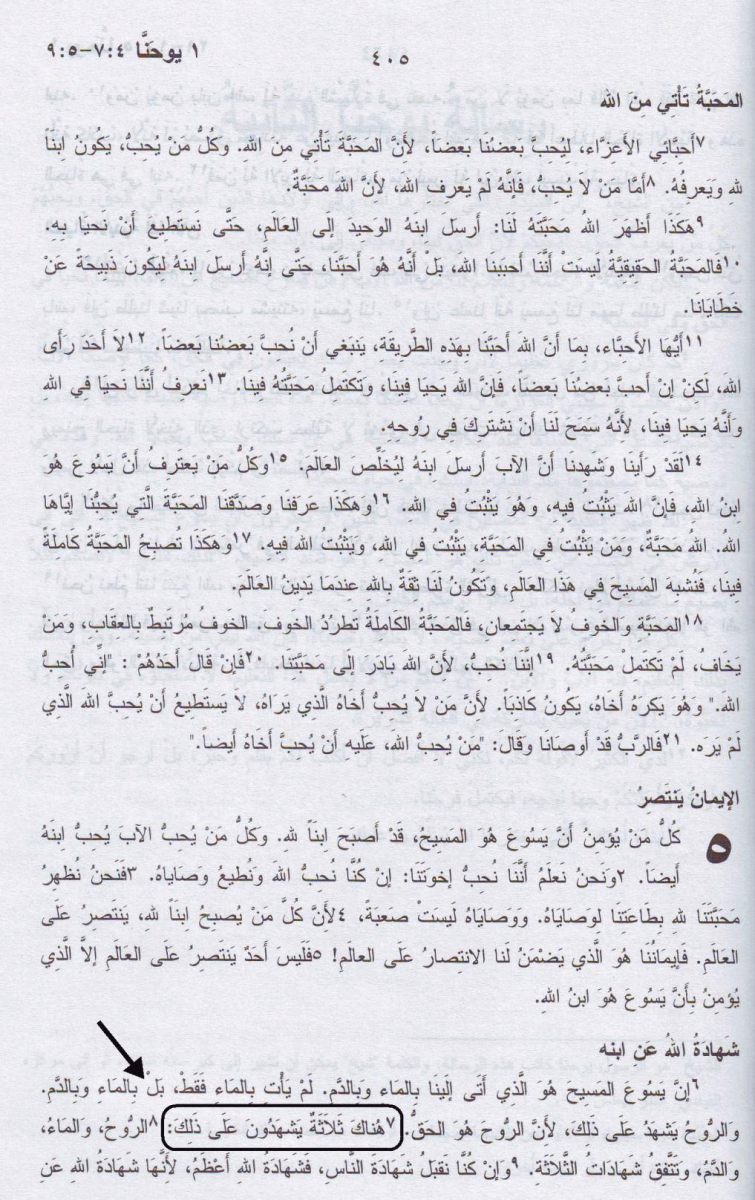 ١ يوحنَّا ٧:٤-٩:٥
٤٠٥
المَحبَّةُ تَأتي مِنَ الله
٧أحبَّائي الأعزاء، ليُحبَّ بعضُنا بعضاً، لأنَّ المَحبَّةَ تأتي مِنَ الله. وكُلُّ مَنْ يُحبُّ، يكونُ ابناً
للهِ ويَعرفُهُ. ٨أمَّا مَن لا يُحبُّ، فإنهُ لمْ يَعرفِ الله، لأنَّ اللهَ محبَّةٌ.
٩هكَذا أظهرَ اللهُ محبَّتَهُ لَنا: أرسلَ ابنَهُ الوحيدَ إلى العالَمِ، حتَّى نستطيعَ أنْ نَحيا بِهِ.
١٠فالمَحبَّةُ الحقيقيَّةُ ليسَتْ أنَّنا أحبَبنا الله، بل أنَّهُ هو أحبَّنا، حتى إنهُ أرسلَ ابنَهُ ليكونَ ذبيحةً عنْ
خطايانا.
١١أيُّها الأحبَّاء، بما أنَّ اللهَ أحبَّنا بهذه الطَّريقَة، ينبغي أنْ نُحبَّ بعضُنا بعضاً. ١٢لا أحدَ رَأى
الله، لكنْ إنْ أحبَّ بَعضُنا بعضاً، فإنَّ اللهَ يحيا فينا، وتكتملُ محبَّتُهُ فينا. ١٣نعرفُ أنَّنا نحيا في الله
وأنَّهُ يَحيا فينا، لأنَّهُ سَمحَ لَنا أنْ نشتركَ في رُوحه.
١٤لَقَدْ رَأينا وشَهدنا أنَّ الآبَ أرسلَ ابنهُ ليُخلِّصَ العالَمَ. ١٥وَكُلُّ مَنْ يَعترفُ أنَّ يَسُوعَ هُو
ابنُ الله، فإنَّ اللهَ يَثبُتُ فيه، وهُو يَثبُتُ في الله. ١٦وهَكذا عَرفنا وصدَّقنا المَحبَّةَ الَّتي يُحبُّنا إيَّاها
الله. اللهُ محبَّةٌ، ومَنْ يَثبُتُ في المحبَّة، يَثبُتُ في الله، ويَثبُتُ اللهُ فيه. ١٧وهكَذا تصبحُ المَحبَّةُ كاملةً
فينا، فنُشبه المَسيحَ في هذا العالَم، وتكُونُ لَنا ثقةٌ بالله عندَما يَدينُ العالَمَ.
١٨المَحبَّةُ والخوفُ لا يجتمعان، فالمَحبَّةُ الكاملَةُ تَطرُدُ الخَوف، الخوفُ مرتبطٌ بالعقاب، ومَنْ
يَخافُ، لَمْ تكتمل محبَّتُهُ. ١٩إنَّنا نُحبُّ، لأنَّ اللهَ بادرَ إلى محبَّتنا. ٢٠فإن قالَ أحَدُهُمْ: "إنِّي أُحبُّ
الله." وهُو يَكرَهُ أخاهُ، يكُونُ كاذباً. لأنَّ مَن لا يُحبُّ أخاهُ الَّذي يَراهُ، لا يَستطيعُ أنْ يُحبَّ اللهَ الَّذي
لَمْ يَرَه. ٢١فالرَّبُّ قدْ أوصَانا وقالَ: "مَنْ يُحبُّ الله، عليه أنْ يُحبَّ أخَاهُ أيضاً."
الإيمانُ يَنتصر
٥
كُلُّ مَنْ يُؤمنُ أنَّ يَسوعَ هُو المَسيحُ، قدْ أصبحَ ابناً لله. وكُلُّ مَنْ يُحبُّ الآبَ يُحبُّ ابنَهُ
أيضاً. ٢ونَحنُ نَعلَمُ أنَّنا نُحبُّ إخوَتَنا: إن كُنَّا نُحبُّ اللهَ ونُطيعُ وَصَاياهُ. ٣فَنَحنُ نُظهرُ
مَحَبَّتَنا للهِ بِطاعَتنا لوَصاياهُ. ووَصاياهُ ليسَتْ صَعبَةً، ٤لأنَّ كُلَّ مَنْ يُصبحُ ابناً لله، ينتصرُ عَلى
العالَم. فإيمانُنا هُو الَّذي يَضمَنُ لَنا الانتصارَ على العالَم! ٥فلَيسَ أحدٌ يَنتَصرُ عَلى العالَم إلاَّ الَّذي
يُؤمنُ بأنَّ يَسُوعَ هُو ابنُ الله.
شَهادَةُ الله عَن ابنه
٦إنَّ يَسوعَ المَسيحَ هُو الَّذي أتَى إلينا بالماءِ وَبالدَّم. لَمْ يَأتِ بالماءِ فقَطْ، بَلْ بالماءِ وَبالدَّم.
والرُّوحُ يَشهدُ على ذلكَ، لأنَّ الرُّوحَ هُو الحَقُّ. ٧هُناكَ ثَلاثَةٌ يَشهَدُون عَلَى ذَلكَ: ٨الرُّوحُ، والماءُ،
والدَّمُ، وتَتَّفقُ شَهاداتُ الثَّلاثَة. ٩وَإنْ كُنَّا نَقبَلُ شَهادَةَ النَّاسِ، فَشَهادَةُ الله أعْظَمُ، لأنَّها شَهادَةُ الله عَنِ